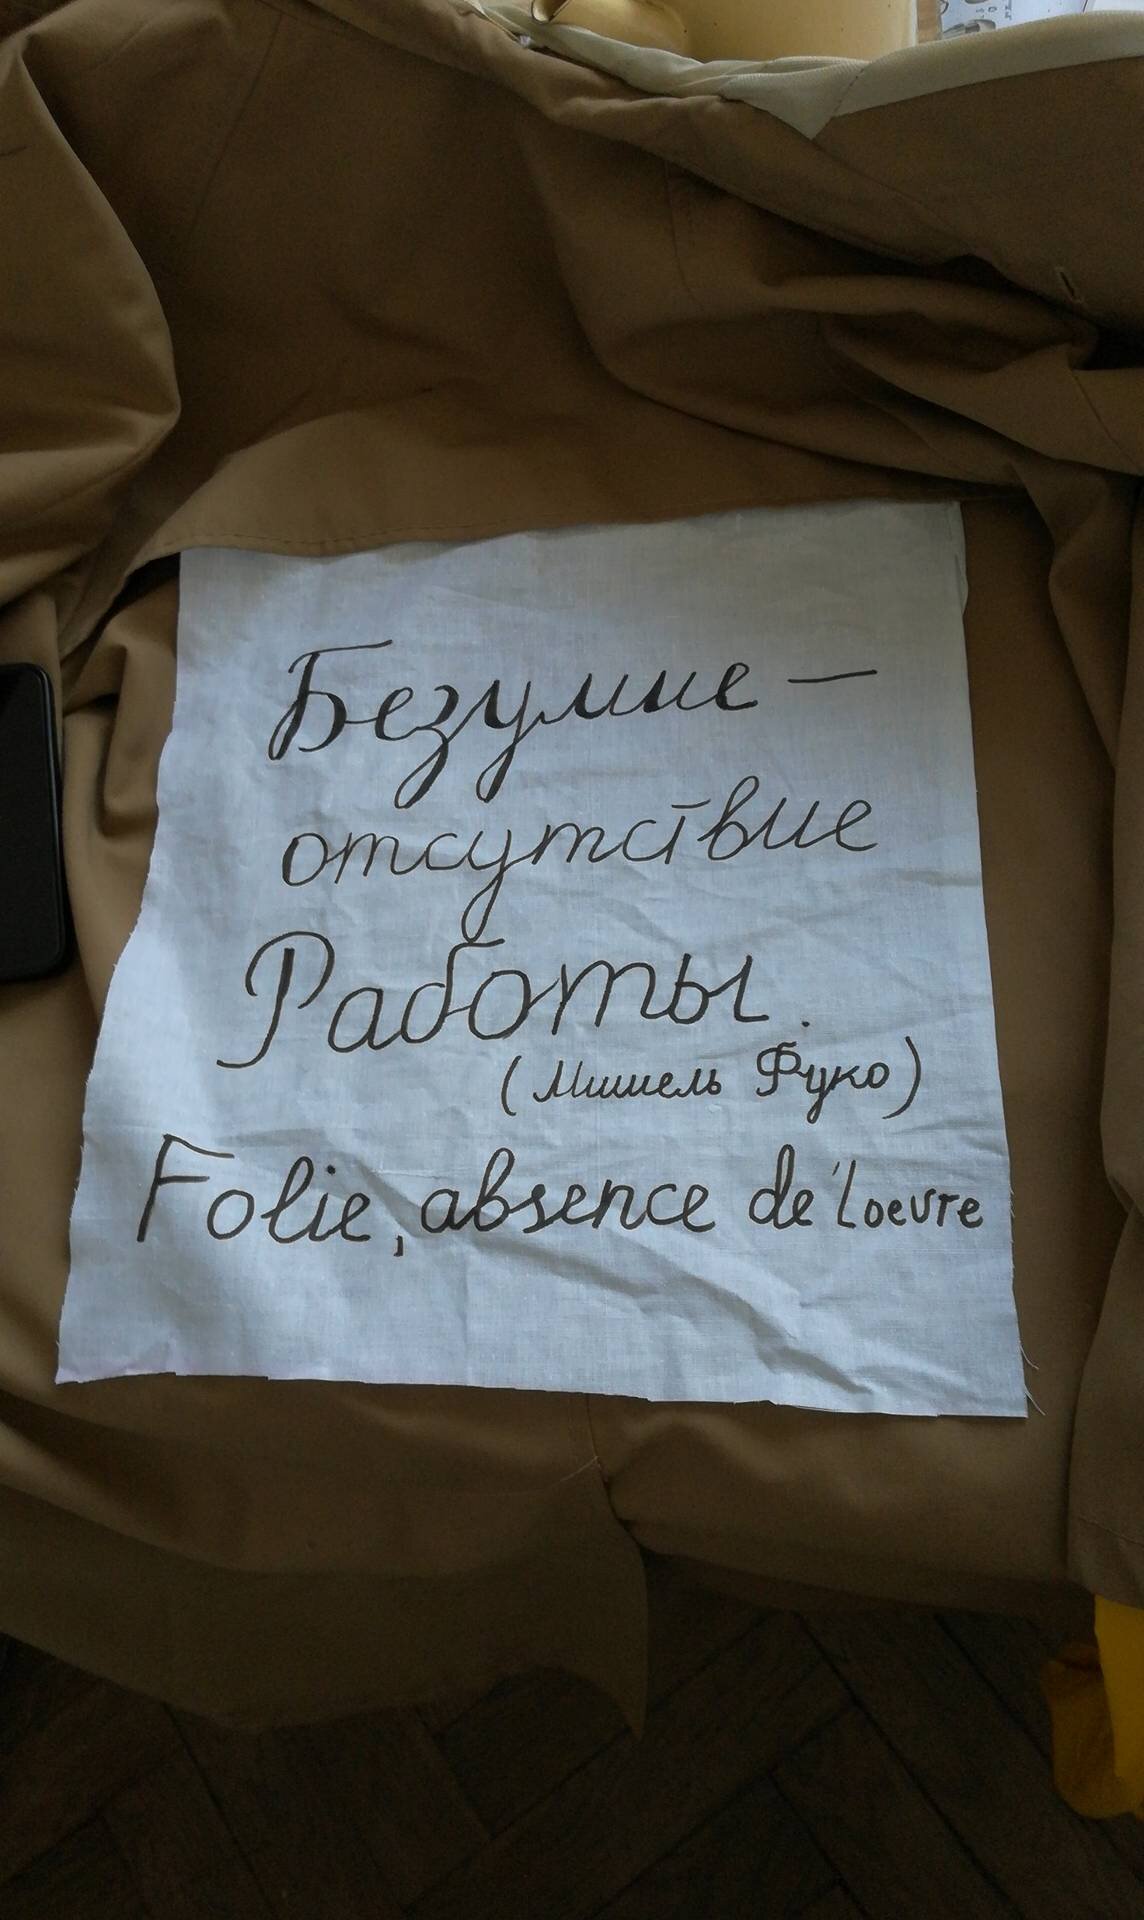 Безумие —
отсутствие
Работы.
(Мишель Фуко)
Folie, absence de'loevre